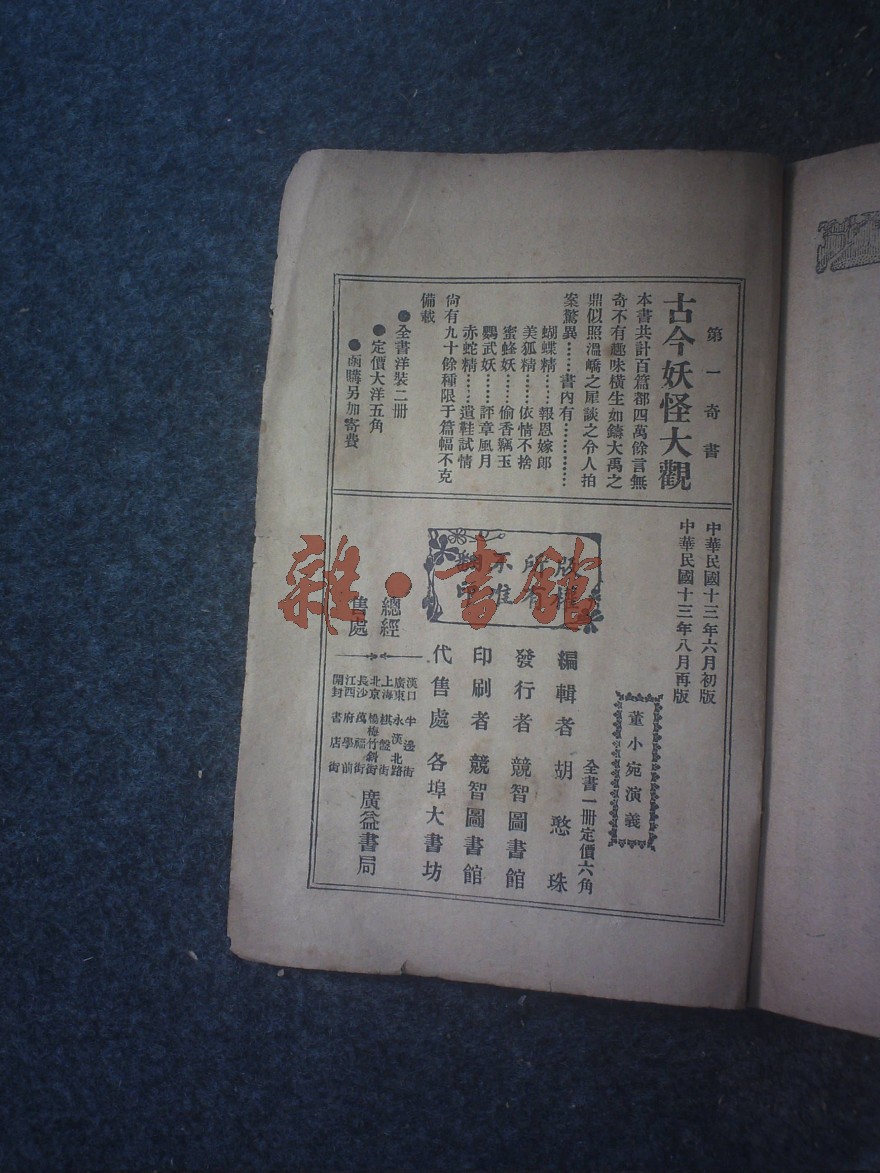 第一奇書
古今妖怪大觀
本書共計百篇都四萬餘言無
奇不有趣味橫生如鑄大禹之
鼎似照溫嶠之犀談之令人拍
案驚異……書內有…………
蝴蝶精……報恩嫁郎
美狐精……依情不捨
蜜蜂妖……偷香竊玉
鸚武妖……評章風月
赤蛇精……遺鞋試情
尙有九十餘種限于篇幅不克
備載
●全書洋裝二冊
●定價大洋五角
●函購另加寄費
中華民國十三年六月初版
中華民國十三年八月再版
董小宛演義
全書一冊定價六角
版權所有不准翻印
編輯者 胡憨珠
發行者 競智圖書館
印刷者 競智圖書館
代售處 各埠大書坊
總經售處
漢口 半邊街
廣東 永漢北路
上海 棋盤街
北京 楊梅竹斜街
長沙 萬福街
江西 府學前
開封 書店街
廣益書局
雜·書館